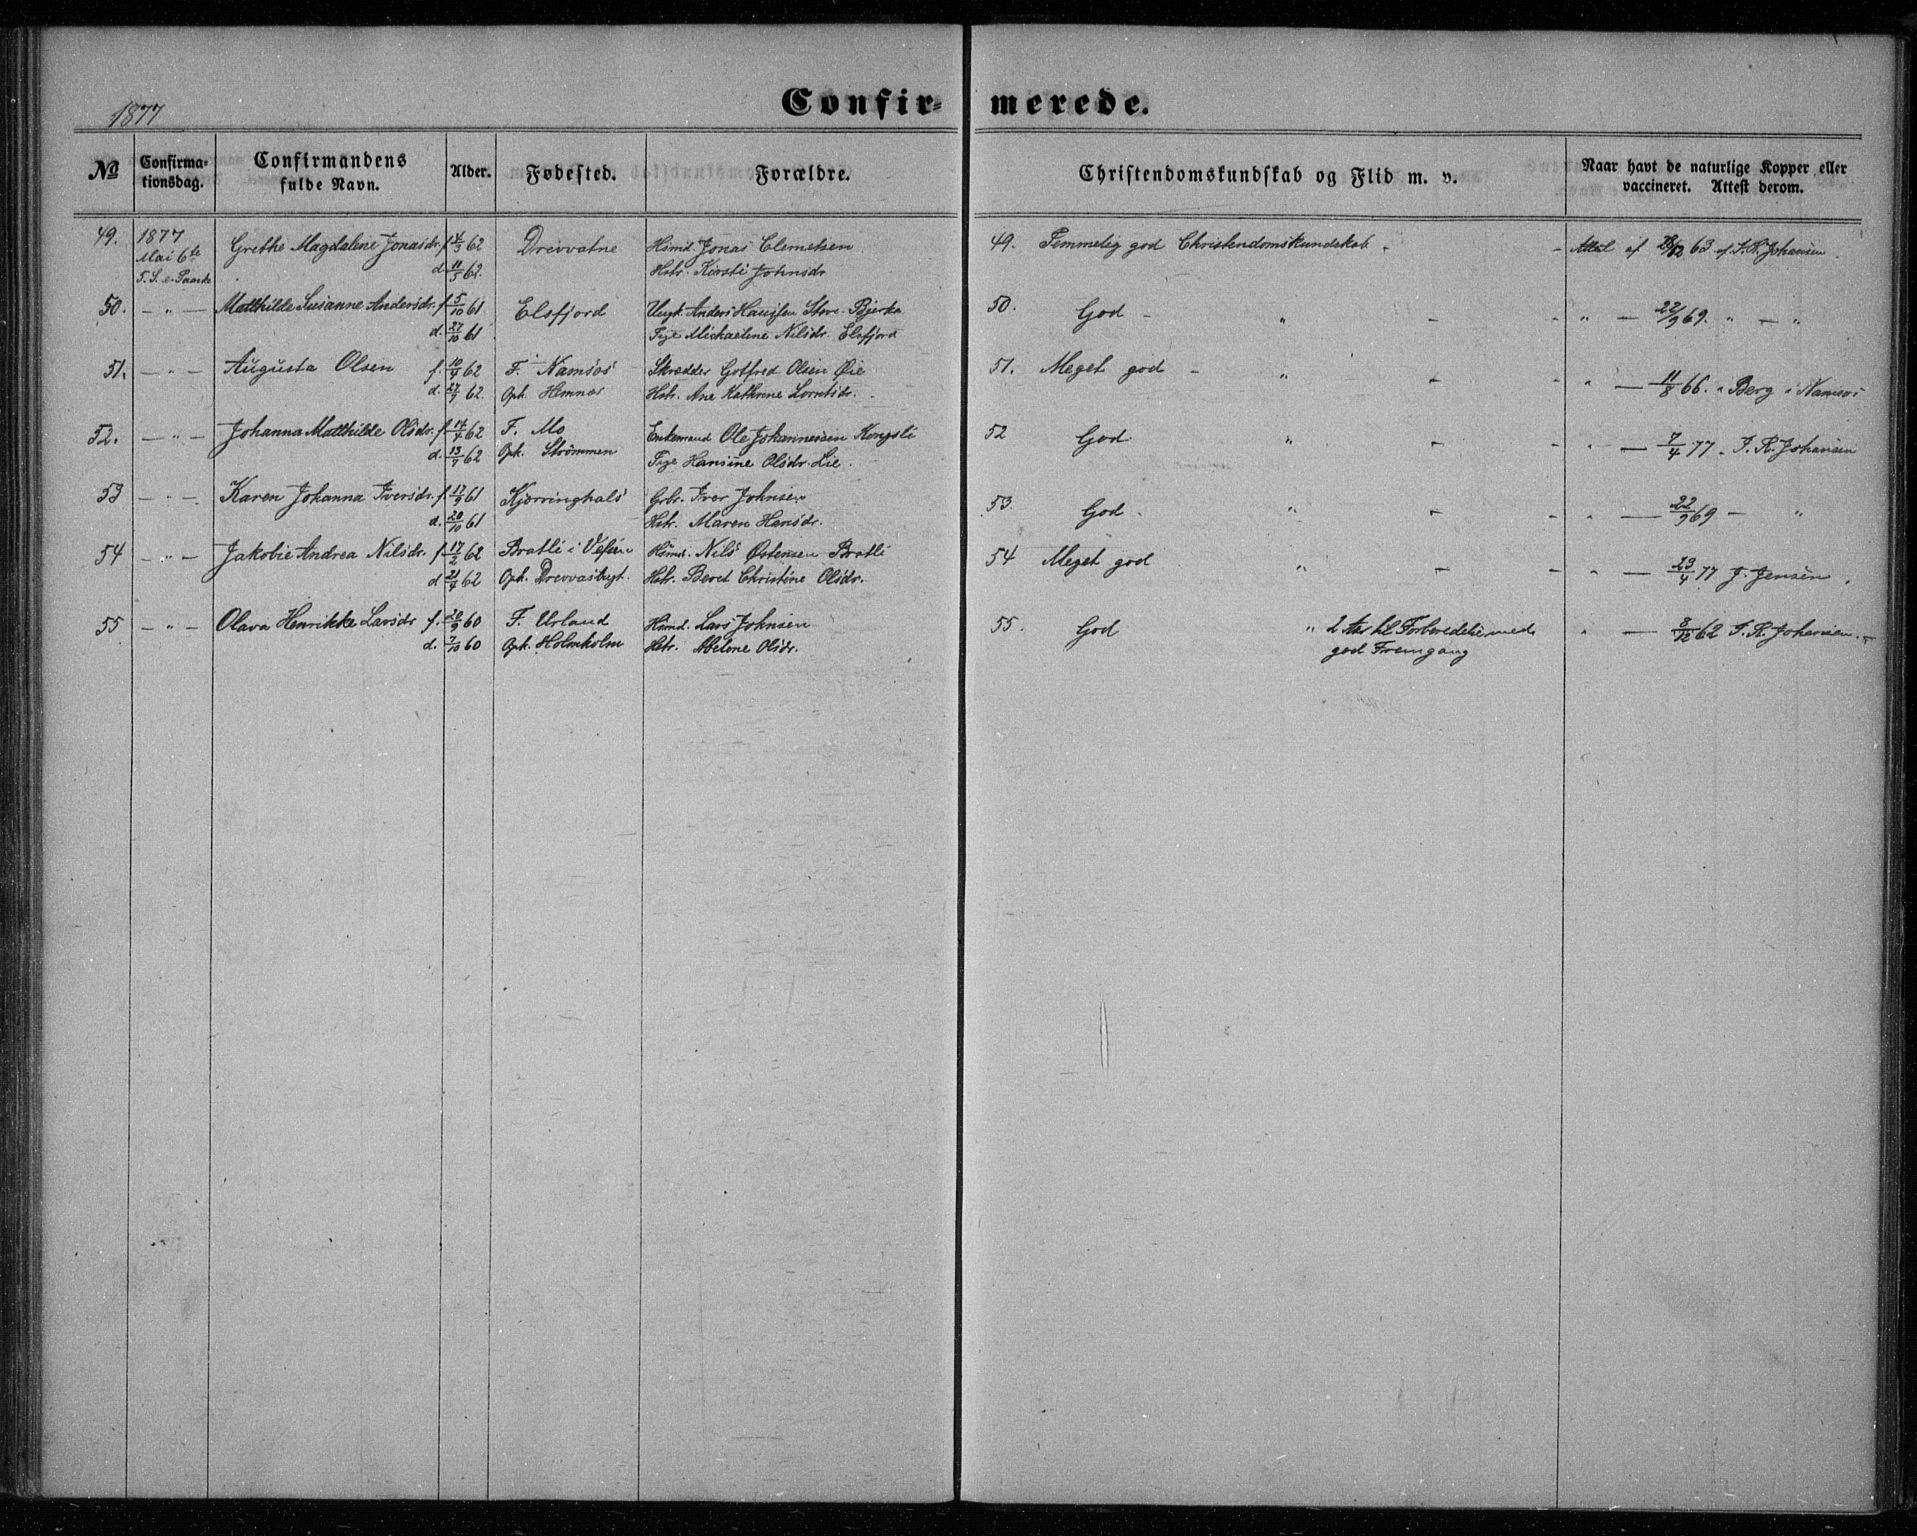 1877
Confir-
merede.
No
Confirma-
tionsdag.
Confirmandens
fulde Navn.
Alder.
Fødested.
Forældre.
Christendomskundskab og Flid m. v.
Naar havt de naturlige Kopper eller
vaccineret. Attest derom.
49. 1877 Grethe Magdalene Jonasdr. f. 4/3 62 Drevvatne Husmd. Jonas Clemetsen 49. Temmelig god Christendomskundskab - - Attest af 28/12 63 af J. R. Johansen
Mai 6te d. 11/5 62. Hstr. Kirsti Johnsdr
5. S. e. Paaske
50. - " - Matthilde Susanne Andersdr. f. 5/10 61 Elsfjord Ungk. Anders Hansen Store-Bjerka 50. God - " - - " - 22/9 69. " - "
d. 27/10 61 Pige Mickaeline Nilsdr. Elsfjord
51. - " - Augusta Olsen f. 10/4 62 F. Namsos Skrædder Gotfred Olsen Øie 51. Meget god - " - - " - 11/8 66. " Berg i Namsos
d. 27/9 62. Oph. Hemnes Hstr. Ane Kathrine Lorntsdr.
52. - " - Johanna Matthilde Olsdr. f. 14/4 62 F. Mo Enkemand Ole Johannessen Kongsli 52 God " - - " - 7/4 77 " J. R. Johansen
d. 13/7 62 Oph. Strømmen Pige Hansine Olsdr. Lie.
53 - " - Karen Johanna Iversdr. f. 17/9 61 Kjerringhals Grbr. Iver Johnsen 53. God - " - - " - 22/9 69 - "
d. 20/10 61 Hstr. Maren Hansdr.
54 - " - Jakobie Andrea Nilsdr. f. 17/2 62 Bratli i Vefsen Husmd. Nils Ostensen Bratli 54 Meget god " - - " - 23/4 77 J. Jensen.
d. 21/4 62 Oph. Drevvasbygt. Hstr. Beret Christine Olsdr.
55 - " - Olava Henrikke Larsdr f. 20/9 60 F. Urland Husmd. Lars Johnsen 55. God " 2 Aar til Forberedelse med " - 8/12 62 J. R. Johansen.
d. 7/10 60 Oph. Holmholm Hstr. Abelone Olsdr. god Fremgang